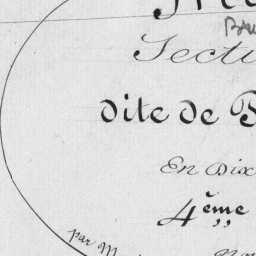 Secti
dite de B
En Dix
4ème
par M